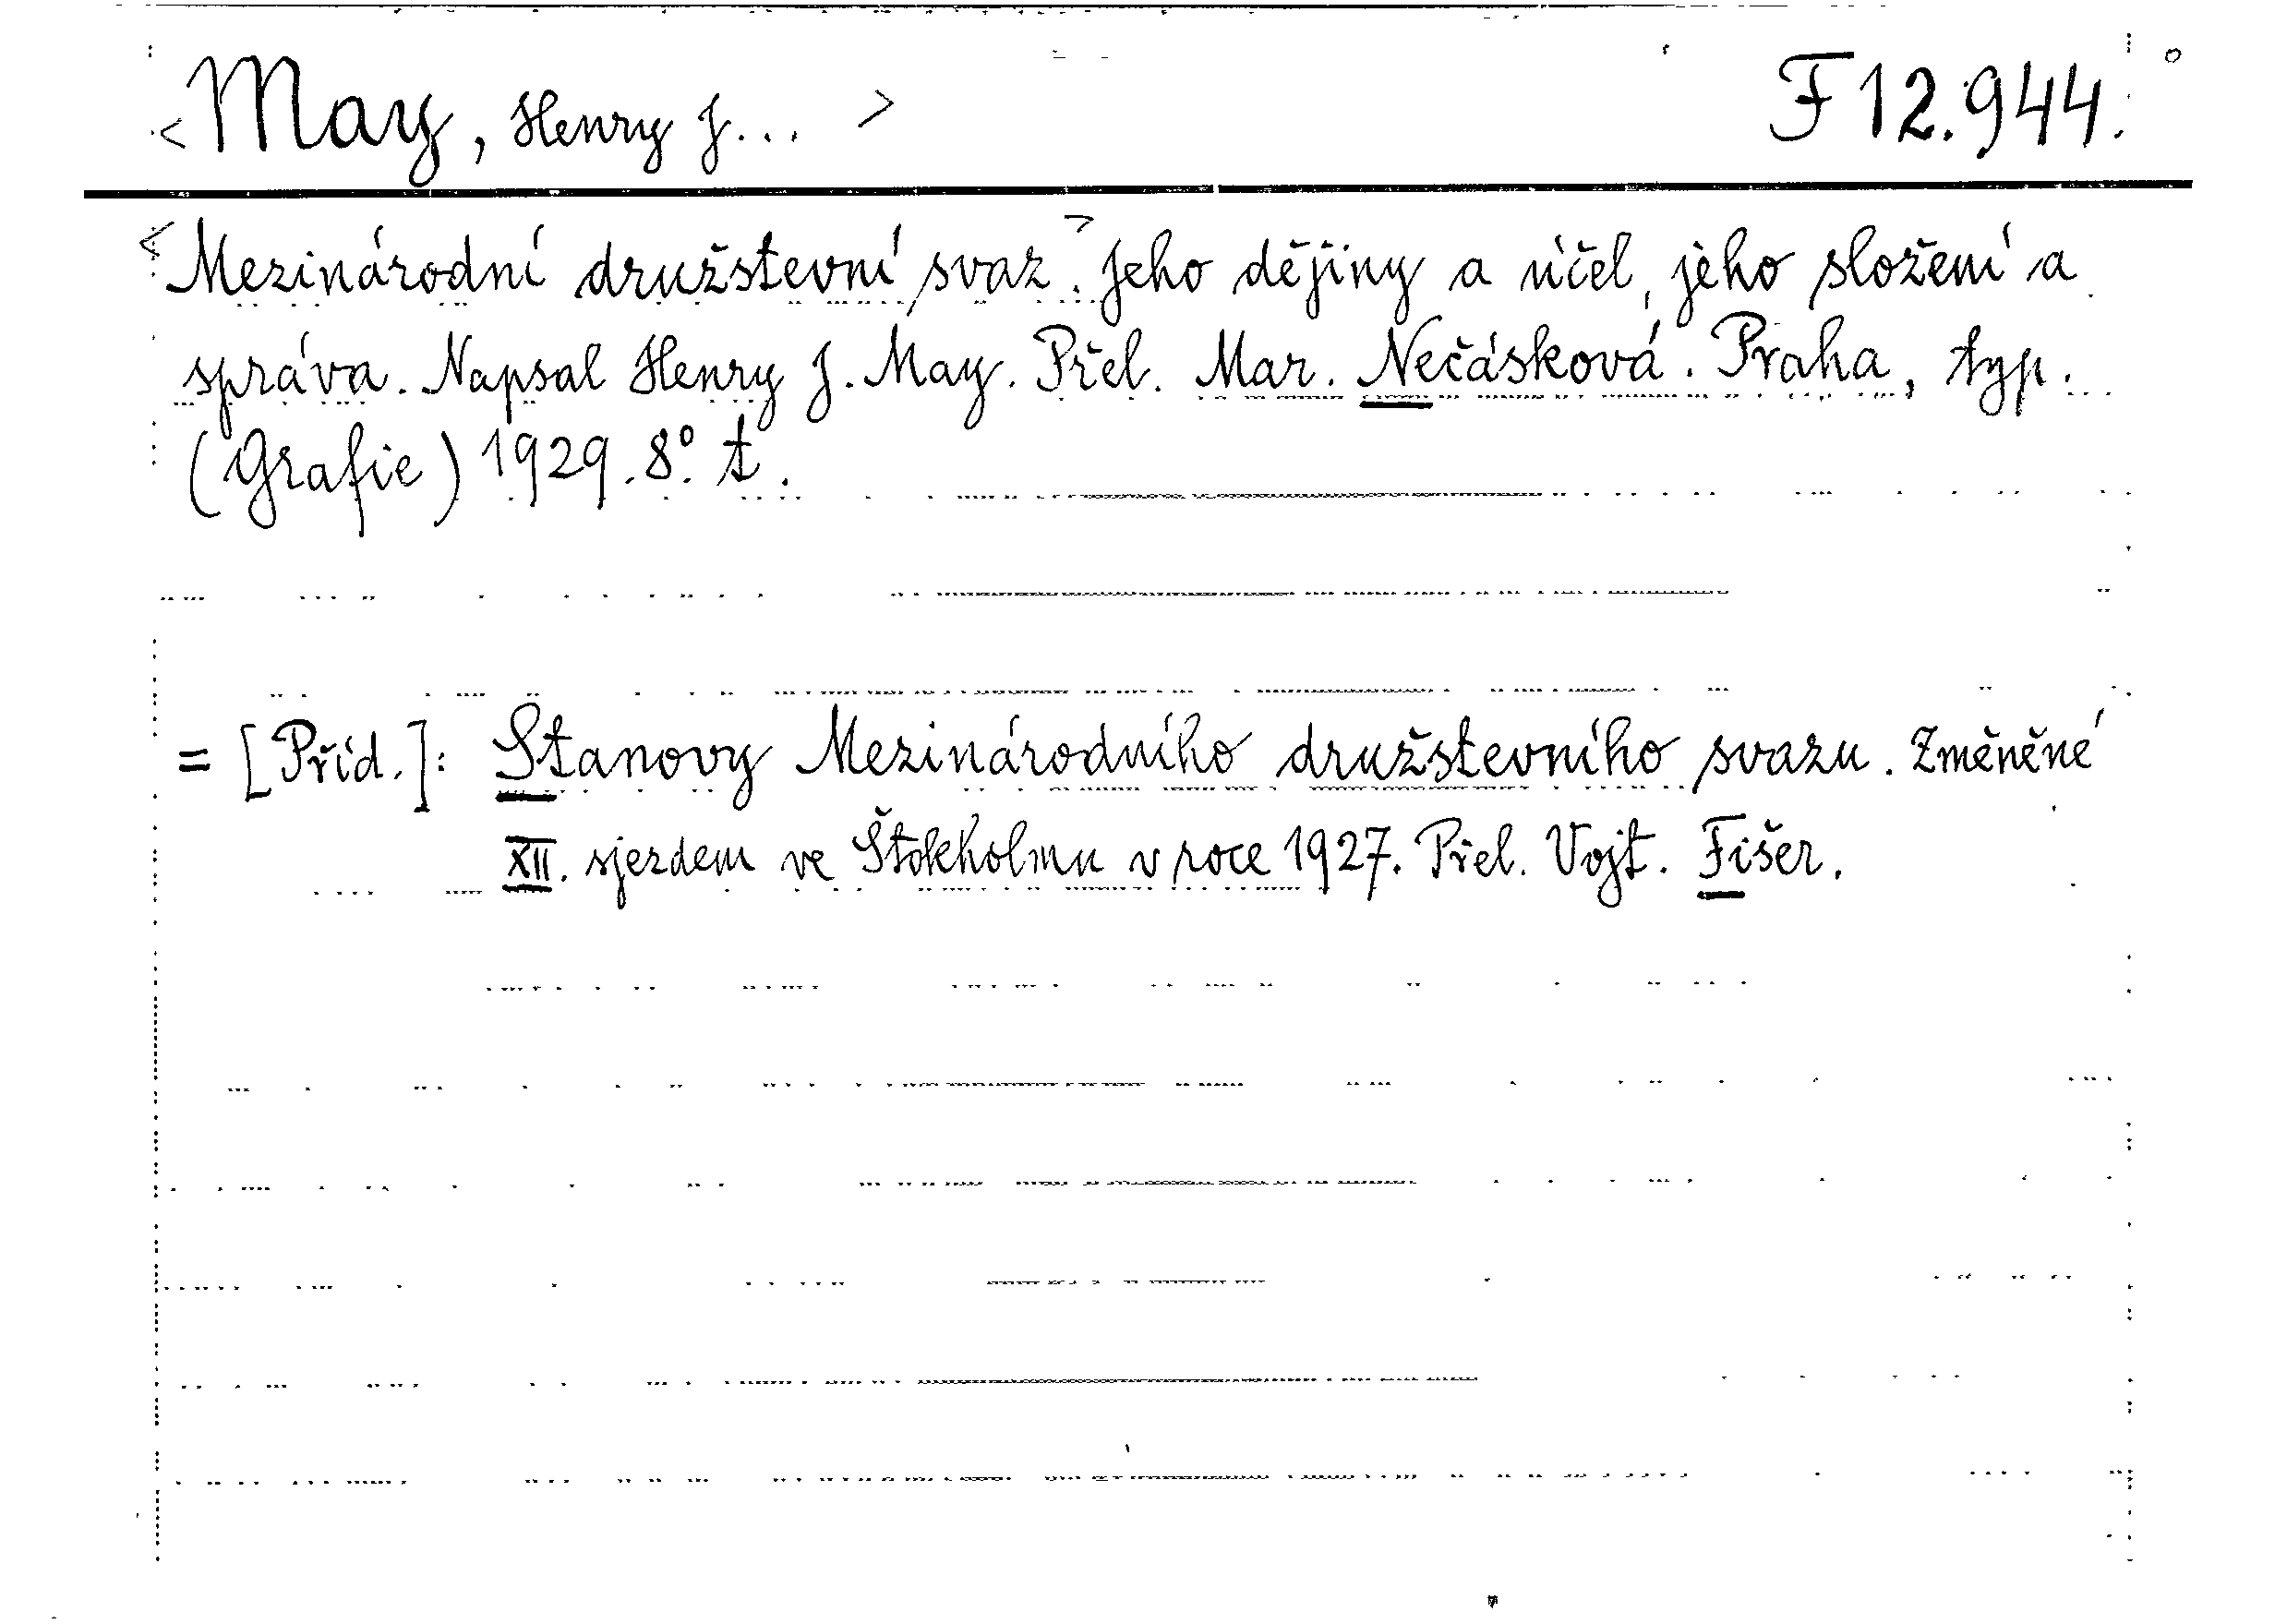 <May, Henry J... > F 12.944.
<Mezinárodní družstevní svaz.> Jeho dějiny a účel, jeho složení a
správa. Napsal Henry J. May. Přel. Mar. Nečásková. Praha, typ.
(Grafie) 1929. 8°. t.
= [Příd.]: Stanovy Mezinárodního družstevního svazu. Změněné
XII. sjezdem ve Štokholmu v roce 1927. Přel. Vojt. Fišer.